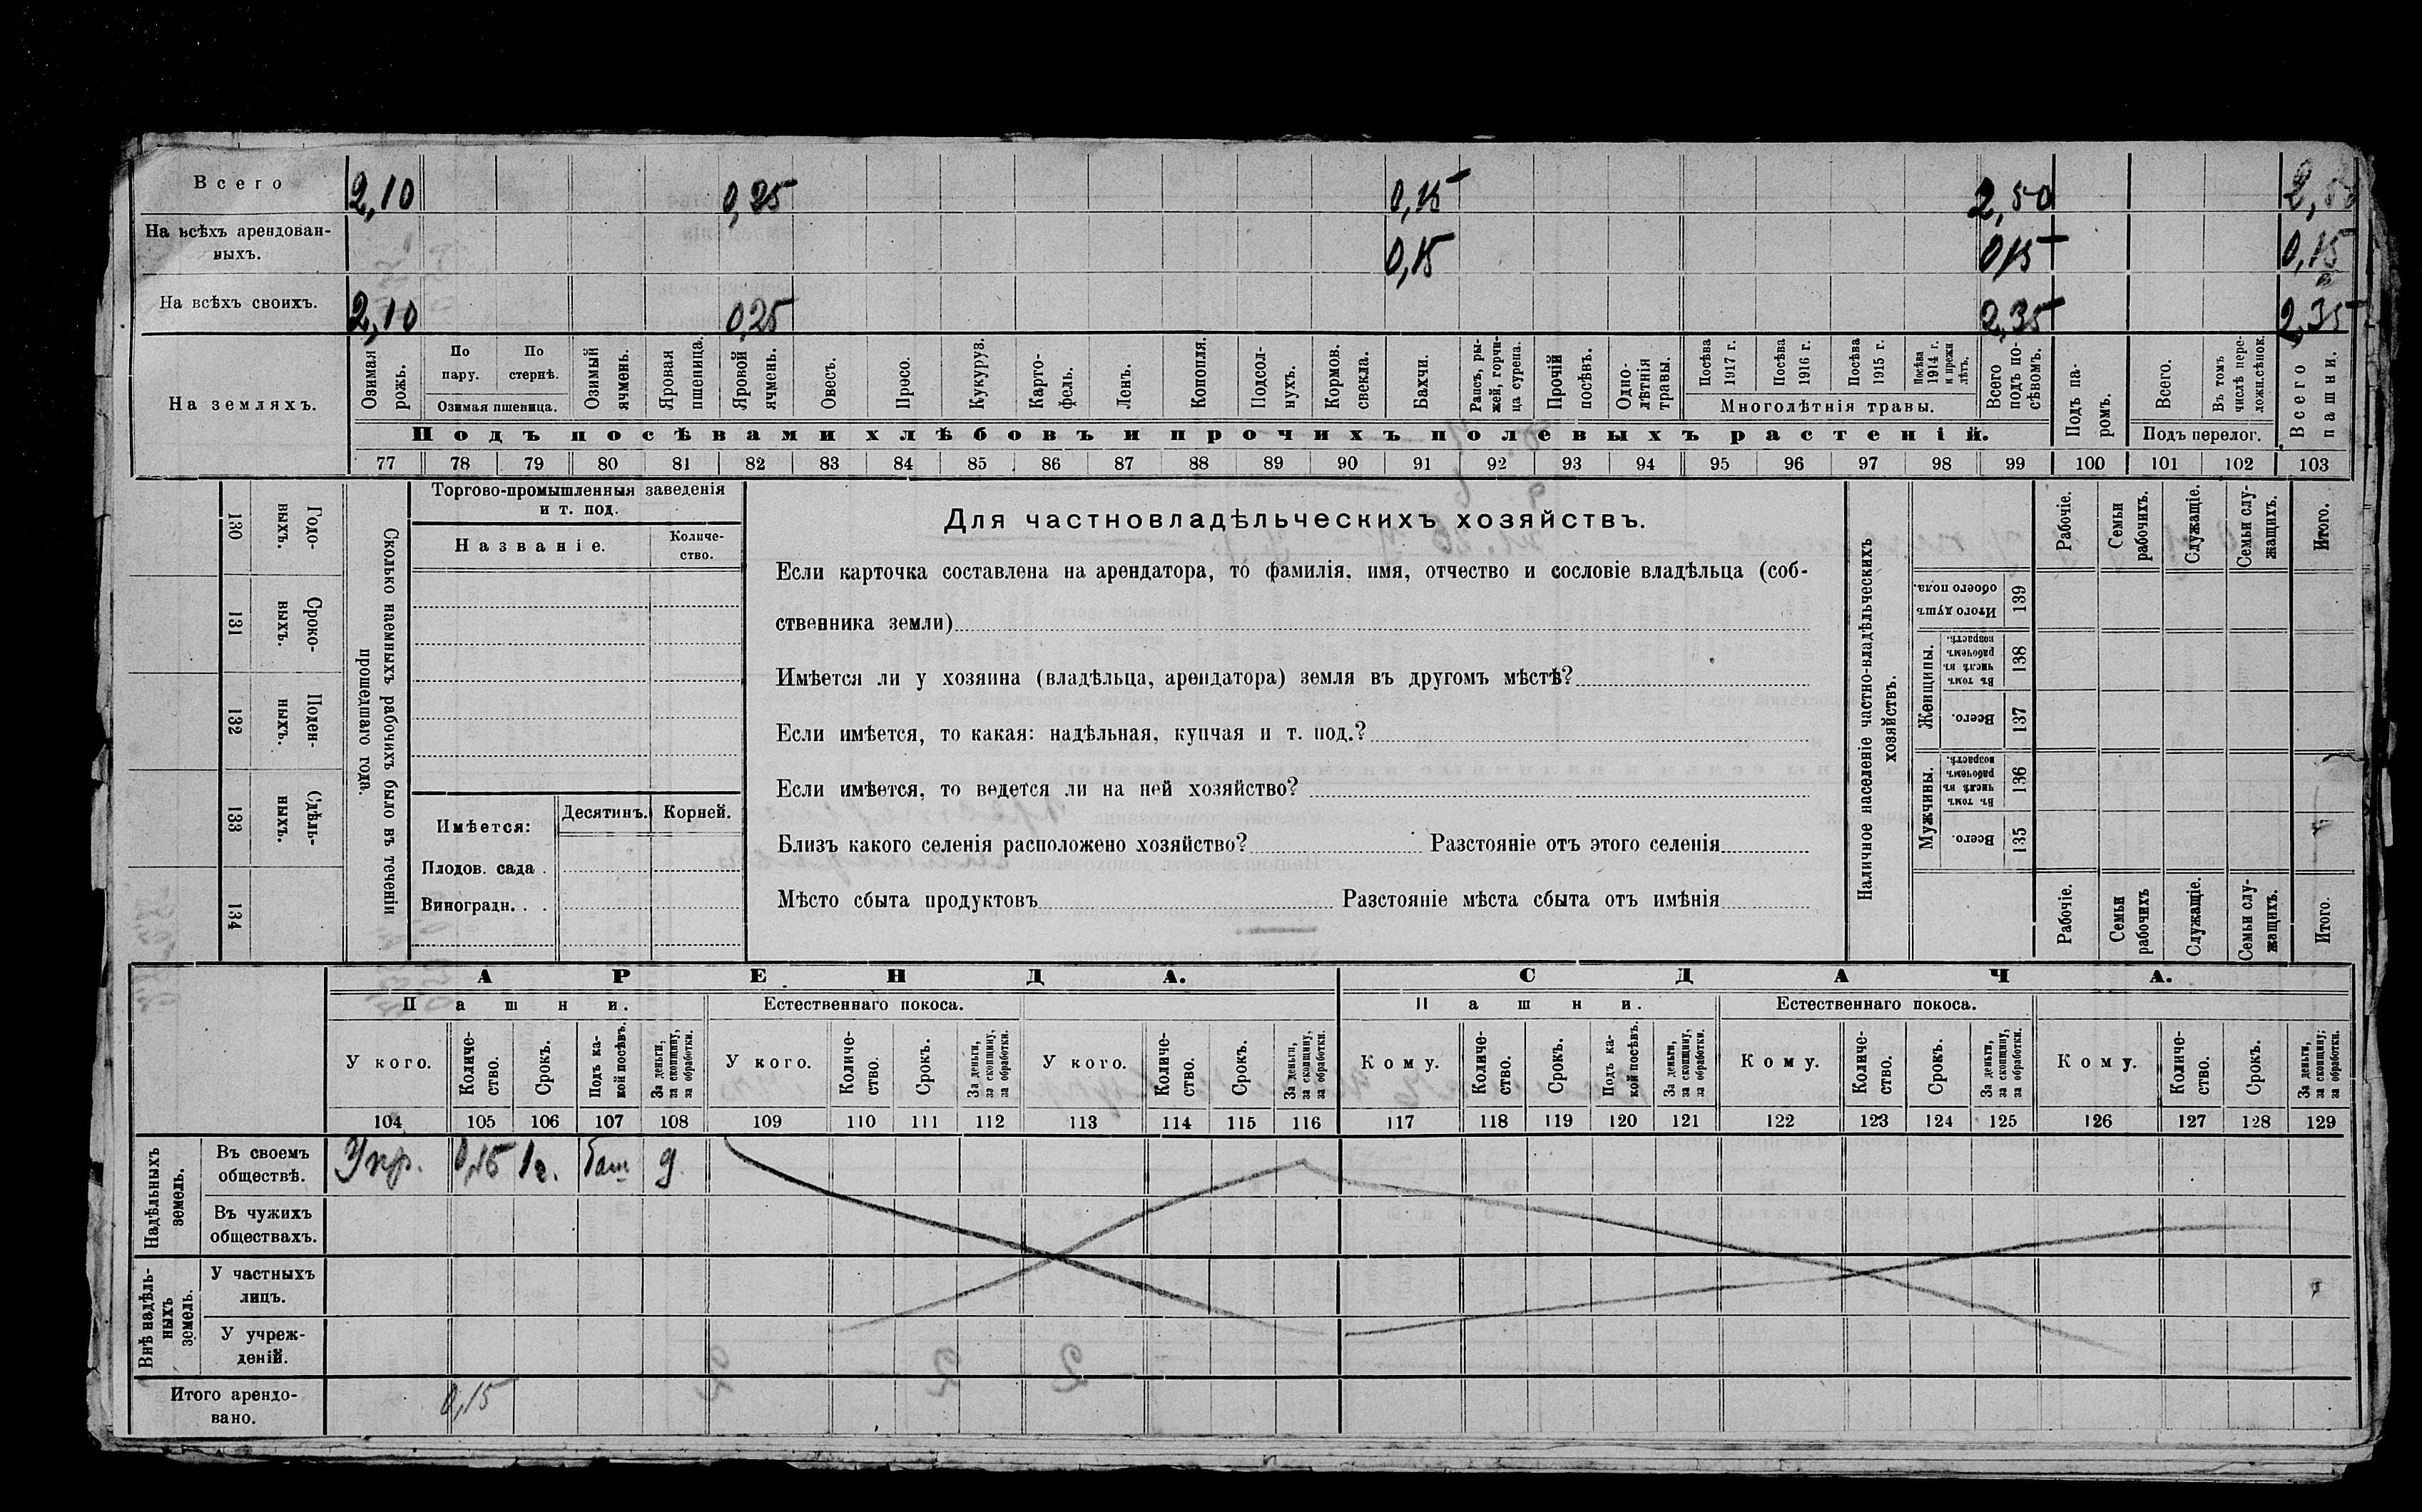 Всего 2,10 0,25 0,15 2,50
На всѣхъ арендован-
ныхъ. 0,15 0,15 0,15
На всѣхъ своихъ. 2,10 0,25 2,35 2,35
На земляхъ.
Озимая рожь.
По пару.
По стернѣ.
Озимая пшеница.
Озимый ячмень.
Яровая пшеница.
Яровой ячмень.
Овесъ.
Просо.
Кукуруз.
Карто-
фель.
Ленъ.
Конопля.
Подсол-
нухъ.
Кормов.
свекла.
Бахчи.
Рапсъ, ры-
жей, горчи-
ца сурепа.
Прочій
посѣвъ.
Одно-
лѣтнія
травы.
Посѣва
1917 г.
Посѣва
1916 г.
Посѣва
1915 г.
Посѣва
1914 г.
и прежн
лѣтъ.
Многолѣтнія травы.
Всего
подъ по-
сѣвомъ.
Подъ па-
ромъ.
Всего.
Въ томъ
числѣ пере-
ложн.сѣнок.
Подъ перелог.
Всего
пашни.
Подъ посѣвами хлѣбовъ и прочихъ полевыхъ растеній.
77 78 79 80 81 82 83 84 85 86 87 88 89 90 91 92 93 94 95 96 97 98 99 100 101 102 103
130 Годо-
ныхъ.
131 Сроко-
ныхъ.
132 Поден-
ныхъ.
133 Сдѣль-
ныхъ.
134
Сколько наемныхъ рабочихъ было въ теченіи
прошедшаго года.
Торгово-промышленныя заведенія
и т. под.
Названіе.
Количе-
ство.
Имѣется:
Десятинъ.
Корней.
Плодов. сада .
Виноградн. . .
Для частновладѣльческихъ хозяйствъ.
Если карточка составлена на арендатора, то фамилія, имя, отчество и сословіе владѣльца (соб-
ственника земли)
Имѣется ли у хозяина (владѣльца, арендатора) земля въ другомъ мѣстѣ?
Если имѣется, то какая: надѣльная, купчая и т. под.?
Если имѣется, то ведется ли на ней хозяйство?
Близъ какого селенія расположено хозяйство? Разстояніе отъ этого селенія
Мѣсто сбыта продуктовъ Разстояніе мѣста сбыта отъ имѣнія
Наличное населеніе частно-владѣльческихъ
хозяйствъ.
Рабочіе.
Семьи
рабочихъ.
Служащіе.
Семьи слу-
жащихъ.
Итого.
Итого душъ
обоего пола.
139
Женщины.
Въ томъ
числѣ въ
рабочемъ
возрастѣ.
138
Всего.
137
Мужчины.
Въ томъ
числѣ въ
рабочемъ
возрастѣ.
136
Всего.
135
Рабочіе.
Семьи
рабочихъ
Служащіе.
Семьи слу-
жащихъ.
Итого.
АРЕНДА. СДАЧА.
Пашни. Естественнаго покоса. Пашни. Естественнаго покоса.
У кого.
Количе-
ство.
Срокъ.
Подъ ка-
кой посѣвъ.
За деньги,
за скопщину,
за обработки.
У кого.
Количе-
ство.
Срокъ.
За деньги,
за скопщину,
за обработки.
У кого.
Количе-
ство.
Срокъ.
За деньги,
за скопщину,
за обработки.
Кому.
Количе-
ство.
Срокъ.
Подъ ка-
кой посѣвъ.
За деньги,
за скопщину,
за обработки.
Кому.
Количе-
ство.
Срокъ.
За деньги,
за скопщину,
за обработки.
Кому.
Количе-
ство.
Срокъ.
За деньги,
за скопщину;
за обработки.
104 105 106 107 108 109 110 111 112 113 114 115 116 117 118 119 120 121 122 123 124 125 126 127 128 129
Надѣльныхъ
земель.
Въ своемъ
обществѣ. Укр. 0,15 1г. Баш д.
Въ чужихъ
обществахъ.
Внѣ надѣль-
ныхъ
земель.
У частныхъ
лицъ.
У учреж-
деній.
Итого арендо-
вано. 0,15